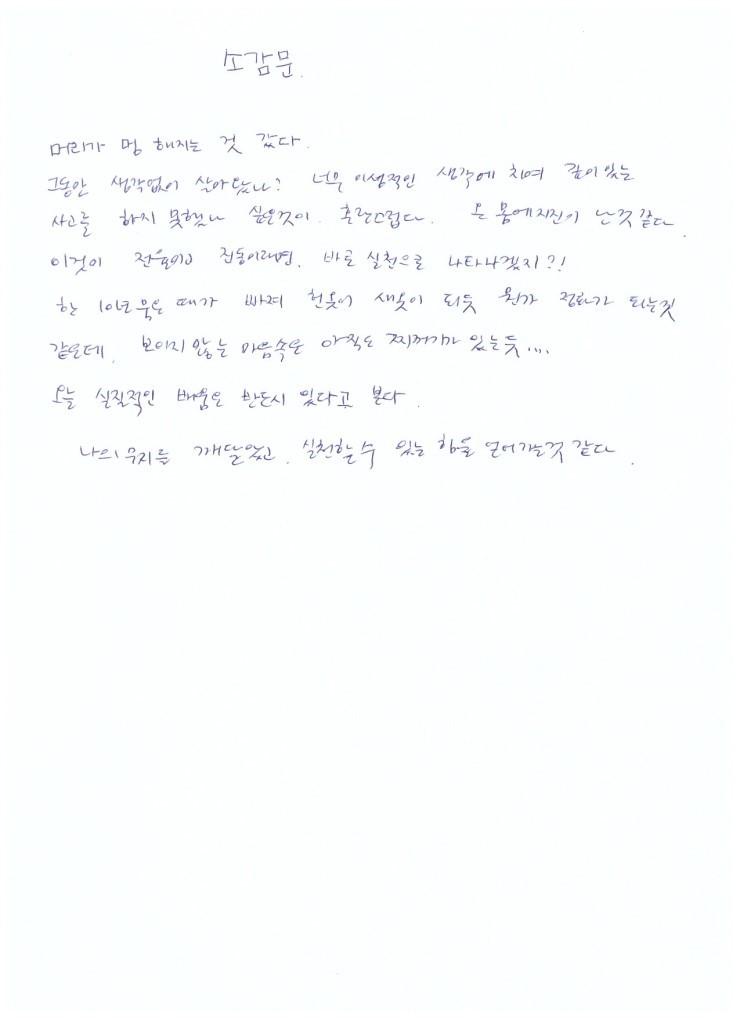 소감문.
머리가 멍 해지는 것 같다.
그동안 생각없이 살아왔나? 너무 이성적인 생각에 치여 깊이 있는
사고를 하지 못했나 싶은것이. 혼란스럽다. 온 몸에 지진이 난것 같다.
이것이 진동이라면. 바로 실천으로 나타나겠지?!
한 10년 묵은 때가 빠져 헌옷이 새옷이 되듯 뭔가 정화가 되는것
같은데. 보이지 않는 마음속은 아직도 찌꺼기가 있는듯....
오늘 실질적인 배움은 반드시 있다고 본다.
나의 무지를 깨달았고. 실천할 수 있는 힘을 얻어가는것 같다.